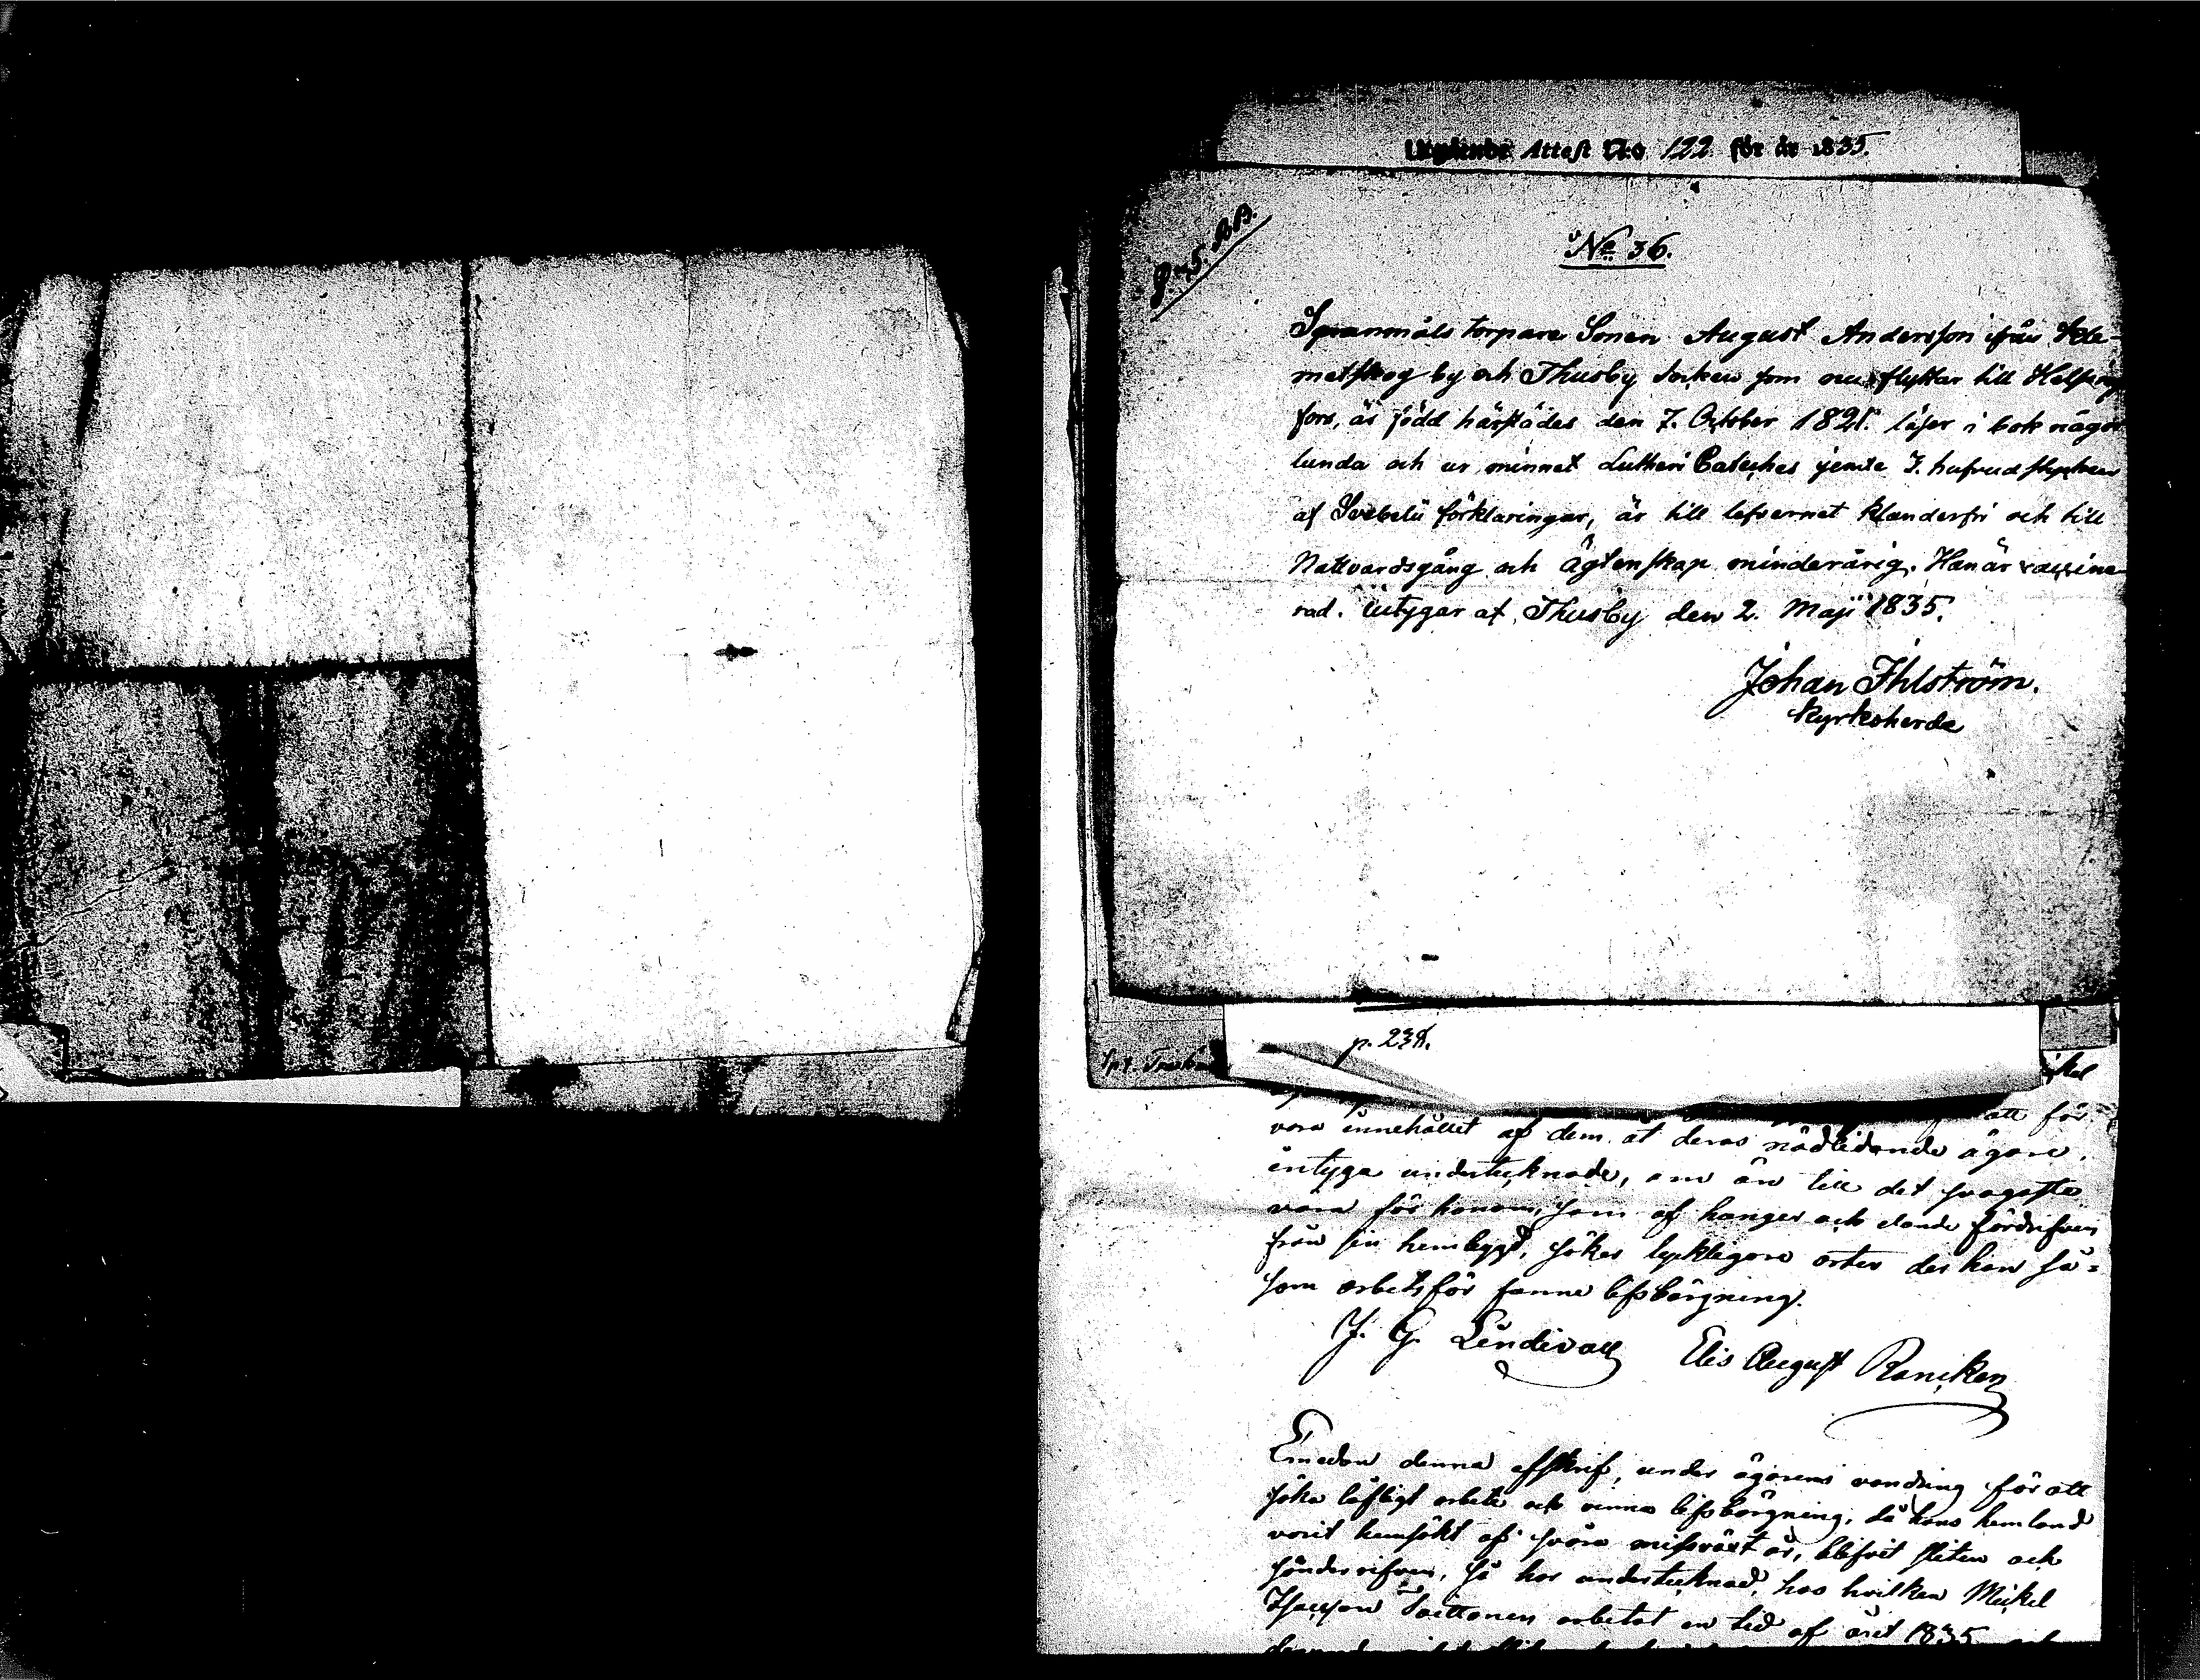 Utgående Attest No 122 för år 1835.
p. 5. BB.
No 36.
Spanmåls torpare Sonen August Andersson ifrån Kle-
metskog by och Thusby Socken som nu flyttar till Helsing
fors, är född härstädes den 7. October 1821. läser i bok någor
lunda och ur minnet Lutheri Cateches jemte 3. hufvudstycken
af Svebelii förklaringar, är till lefvernet klanderfri och till
Nattvardsgång och Ägtenskap minderårig. Han är vaccine-
rad. intygar af Thusby den 2. Maji 1835.
Johan Ihlström.
Kyrkoherde
p. 238.
att för
vara innehållet af dem åt deras nödlidande ägare,
intyga undertecknade, om än till det svagaste
värn för honom, som af hunger och elände fördrifven
från sin hembygd, söker lyckligare orter der han så-
som arbetsför funne lifsbergning.
J. G. Lindevall Elis August Rancken
Emedan denna afskrift, under ägarens vandring för att
söka lofligt arbete och vinna lifsbergning, då hans hemland
varit hemsökt af svåra missväxt år, blifvit sliten och
sönderrifven, så har undertecknad, hos hvilken Mickel
Isacsson Toittonen arbetat en tid af året 1835